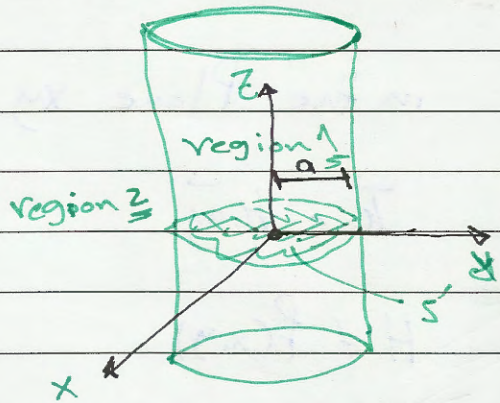 Z
region 1
a
region 2
y
S'
x